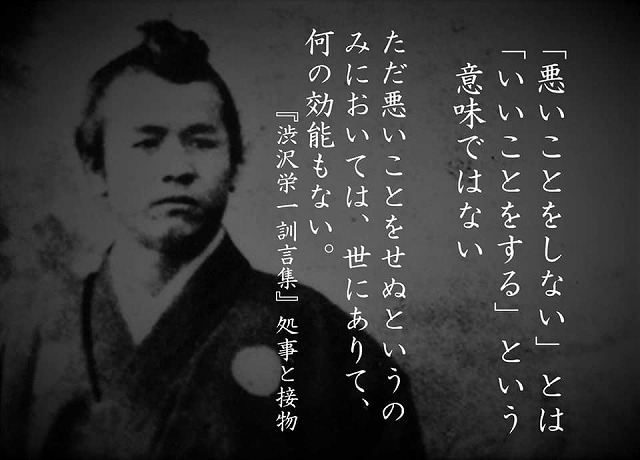 「悪いことをしない」とは
「いいことをする」という
意味ではない
ただ悪いことをせぬというの
みにおいては、世にありて、
何の効能もない。
『渋沢栄一訓言集』処事と接物